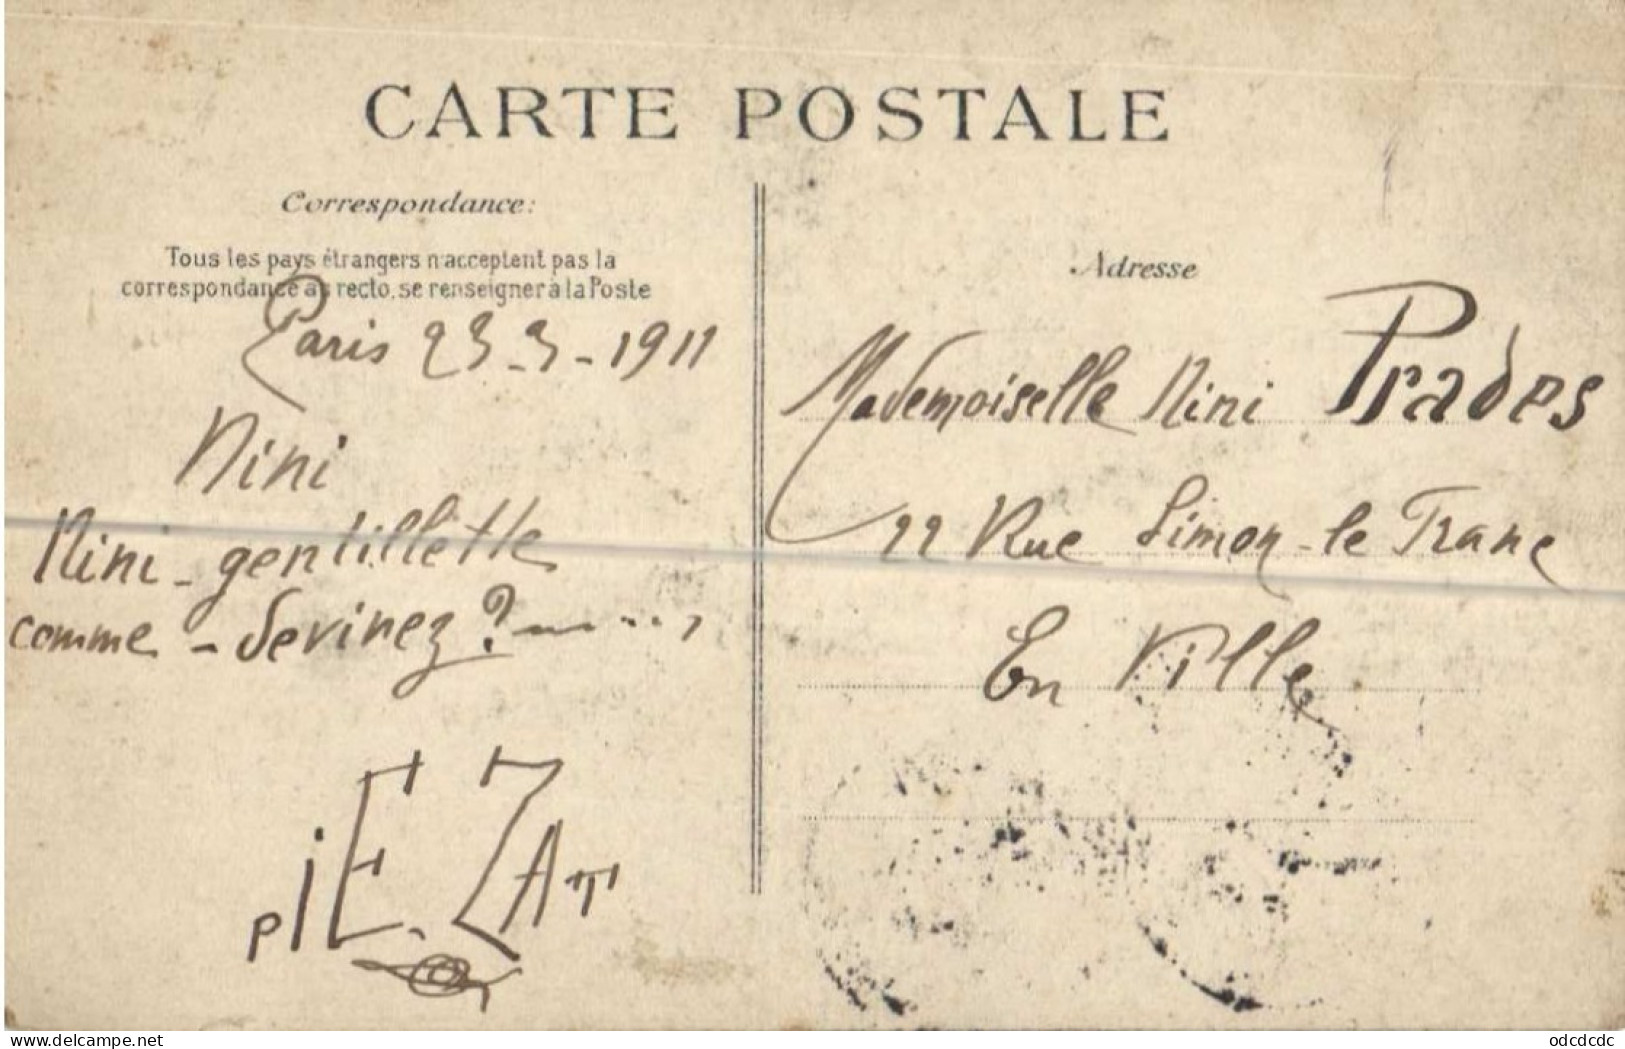 CARTE POSTALE
Correspondance:
Tous les pays étrangers n'acceptent pas la
correspondance au recto, se renseigner à la Poste
Paris 23-3-1911
Nini
Nini-gentillette
comme - devinez ?
piE.ZAT
Adresse
Mademoiselle Nini Prades
22 Rue Simon-le Franc
En Ville
delcampe.net
odcdcdc